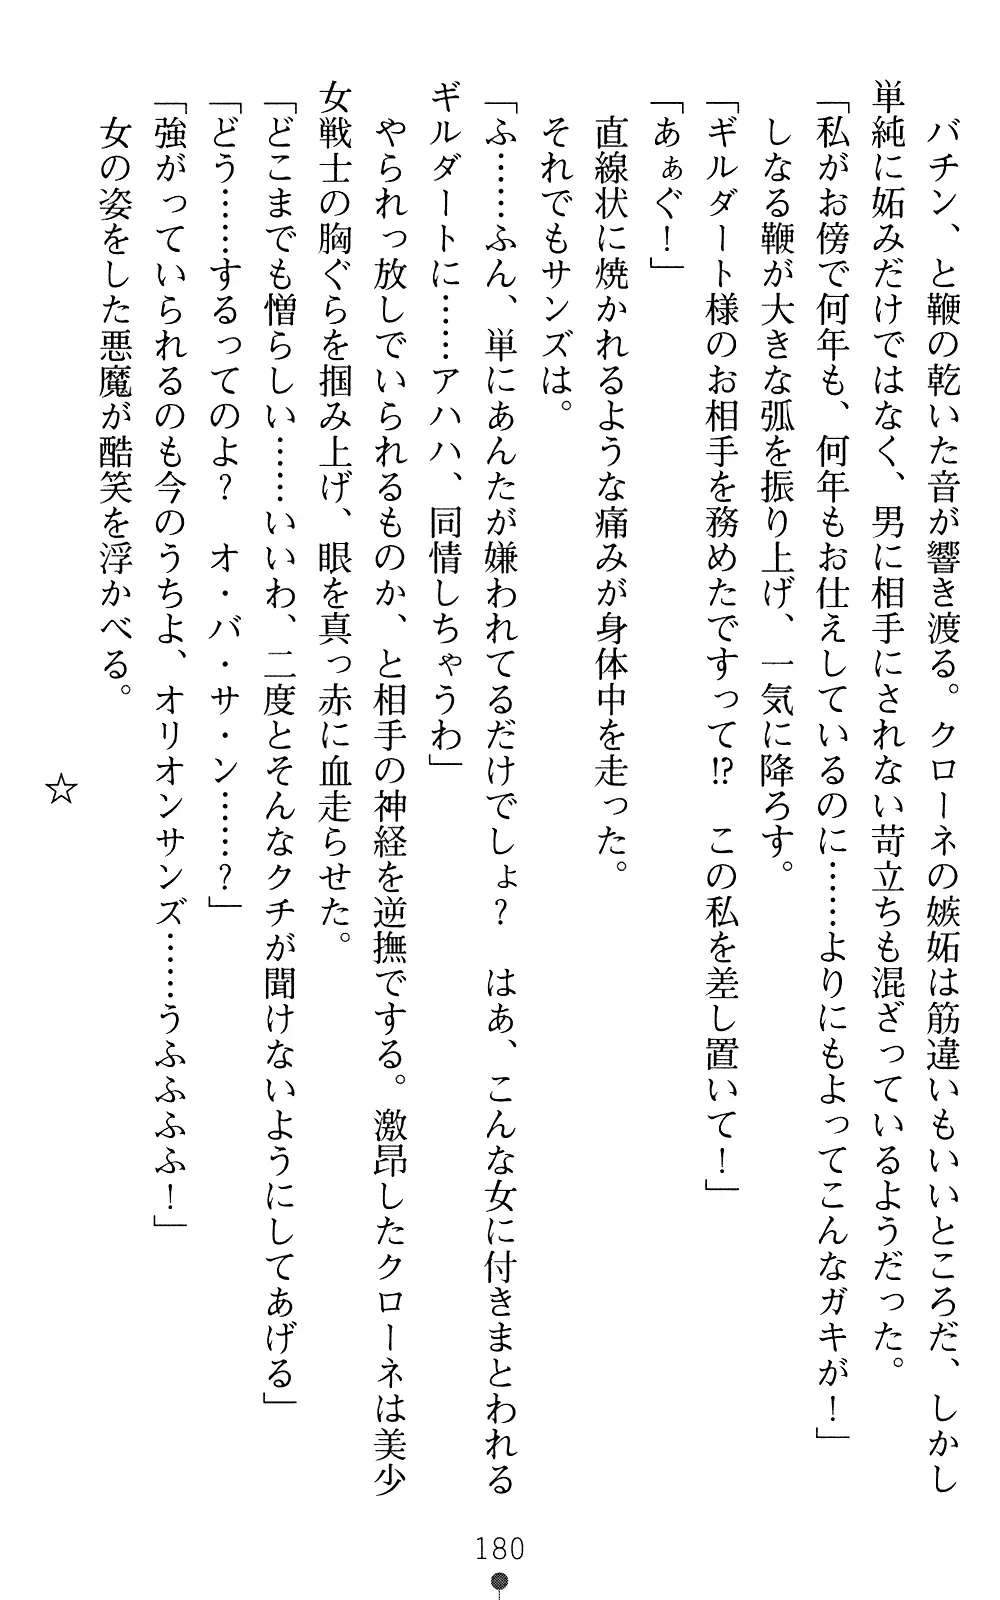 バチン、と鞭の乾いた音が響き渡る。クローネの嫉妬は筋違いもいいところだ、しかし
単純に妬みだけではなく、男に相手にされない苛立ちも混ざっているようだった。
「私がお傍で何年も、何年もお仕えしているのに……よりにもよってこんなガキが！」
しなる鞭が大きな弧を振り上げ、一気に降ろす。
「ギルダート様のお相手を務めたですって!?　この私を差し置いて！」
「あぁぐ！」
直線状に焼かれるような痛みが身体中を走った。
それでもサンズは。
「ふ……ふん、単にあんたが嫌われてるだけでしょ？　はあ、こんな女に付きまとわれる
ギルダートに……アハハ、同情しちゃうわ」
やられっ放しでいられるものか、と相手の神経を逆撫でする。激昂したクローネは美少
女戦士の胸ぐらを掴み上げ、眼を真っ赤に血走らせた。
「どこまでも憎らしい……いいわ、二度とそんなクチが聞けないようにしてあげる」
「どう……するってのよ？　オ・バ・サ・ン……？」
「強がっていられるのも今のうちよ、オリオンサンズ……うふふふふ！」
女の姿をした悪魔が酷笑を浮かべる。
☆
180